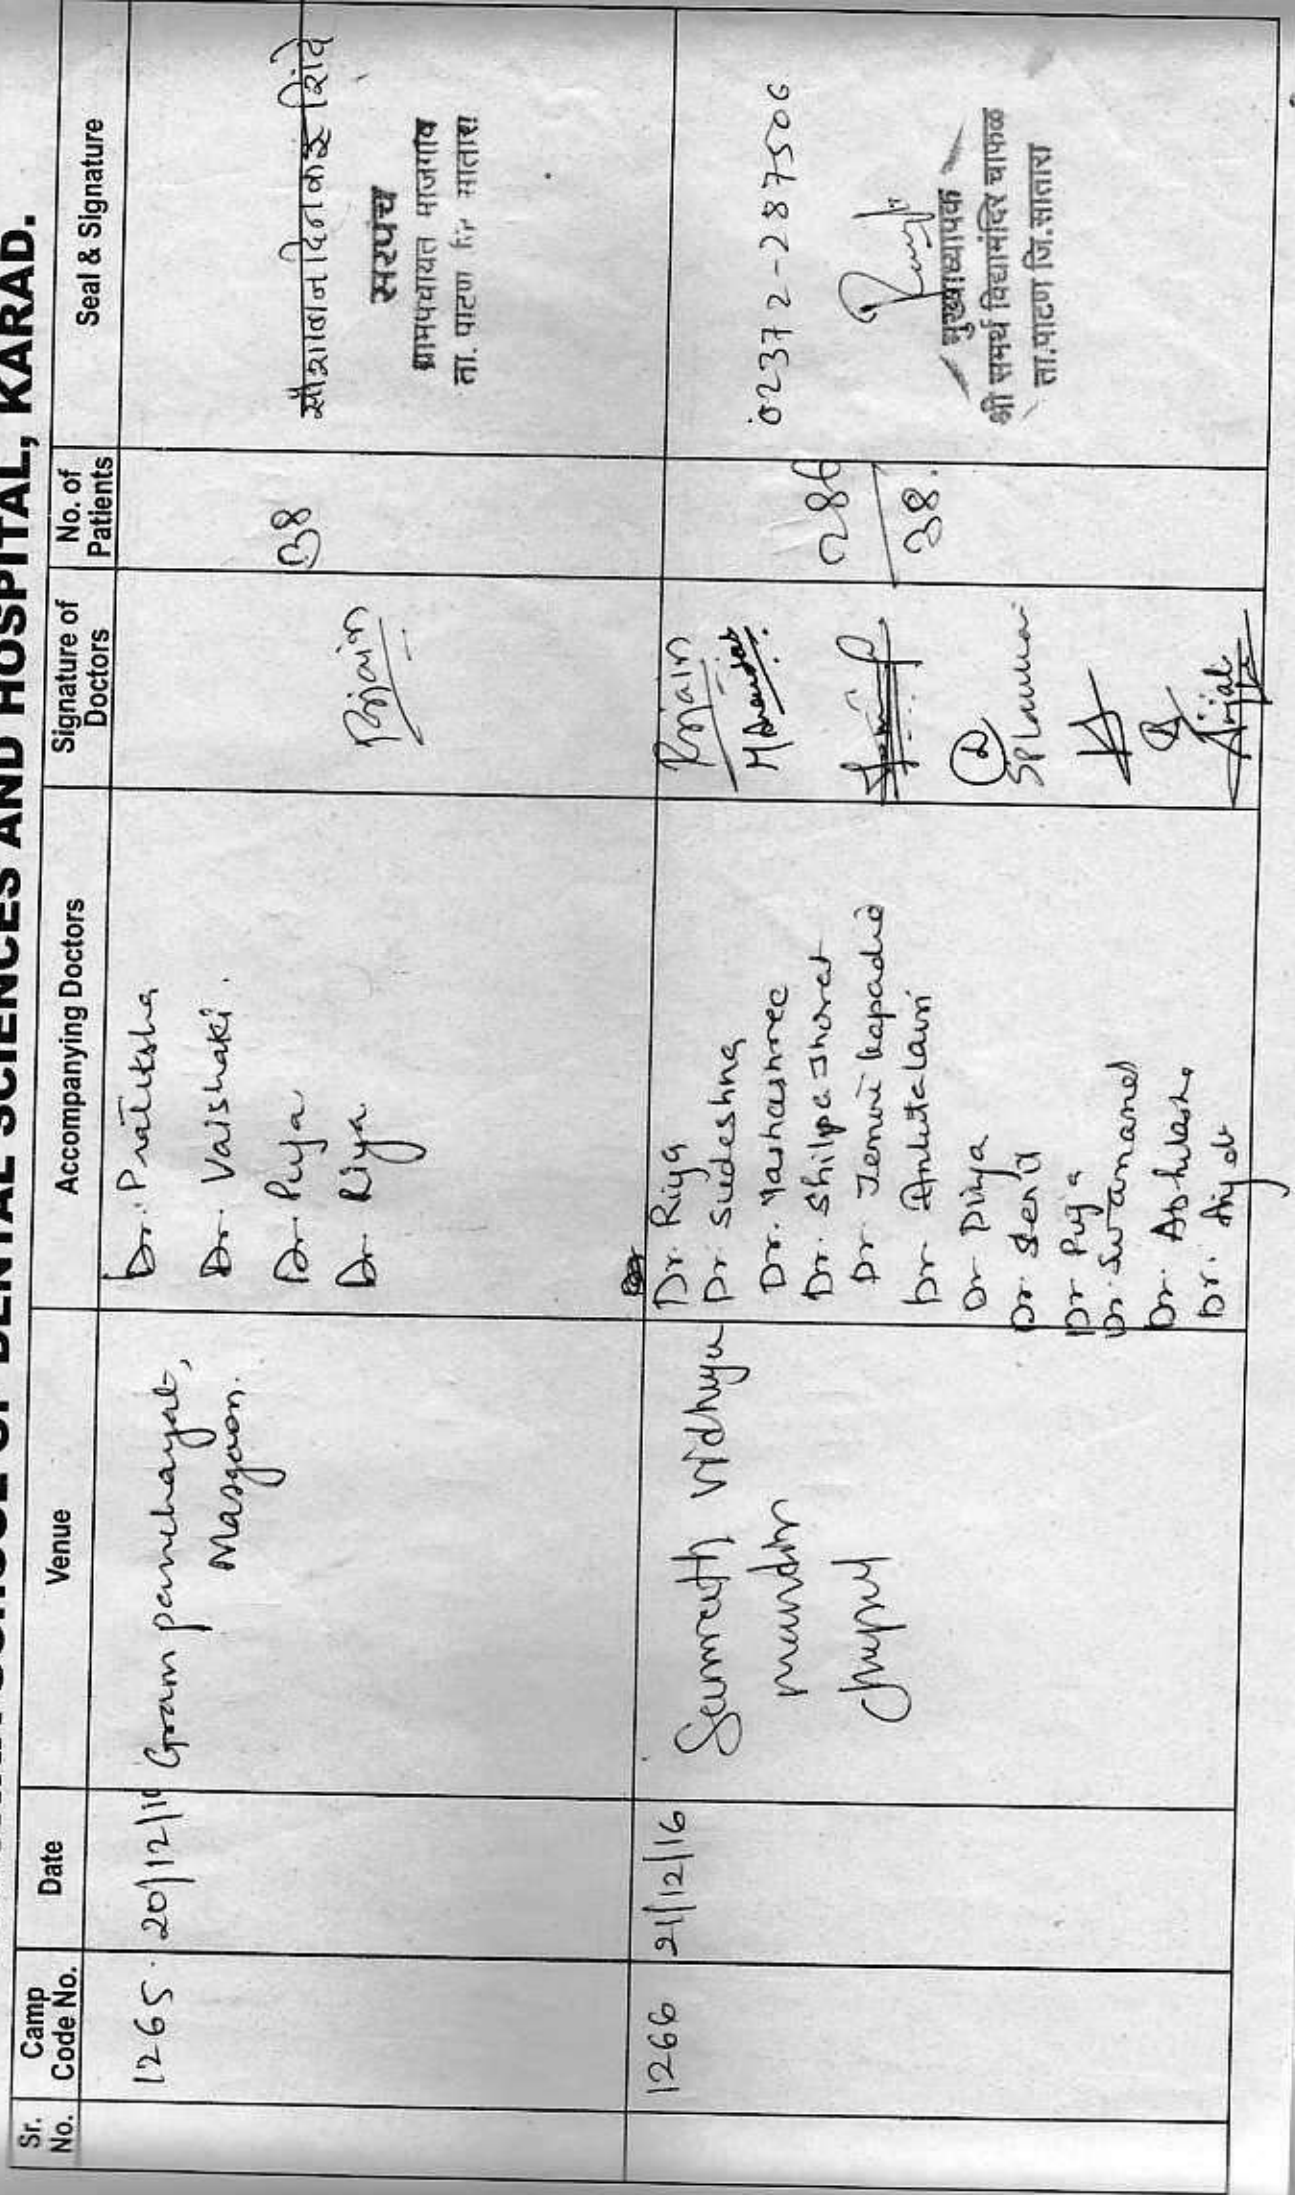 SCHOOL OF DENTAL SCIENCES AND HOSPITAL, KARAD.
Sr. No.
Camp Code No.
Date
Venue
Accompanying Doctors
Signature of Doctors
No. of Patients
Seal & Signature
1265
20/12/1
Gram panchayat,
Masgaon.
Dr. Pratiksha
Dr. Vaishaki.
Dr. Puja
Dr. Riya
Rjain
38
शिंदे
सरपंच
ग्रामपंचायत माजगांव
ता. पाटण जि. सातारा
1266
21/12/16
Samrath Vidhya
mandir
Dr. Riya
Dr Sudeshna
Dr. Yashashree
Dr. Shilpa Thorat
Dr Jenvi kapadia
Dr
Dr Divya
Dr.
Dr Puja
Dr. Swanand
Dr. Abhilasha
Dr.
Rjain
Anjali
286
38.
02372-287506
मुख्याध्यापक
श्री समर्थ विद्यामंदिर चाफळ
ता.पाटण जि.सातारा